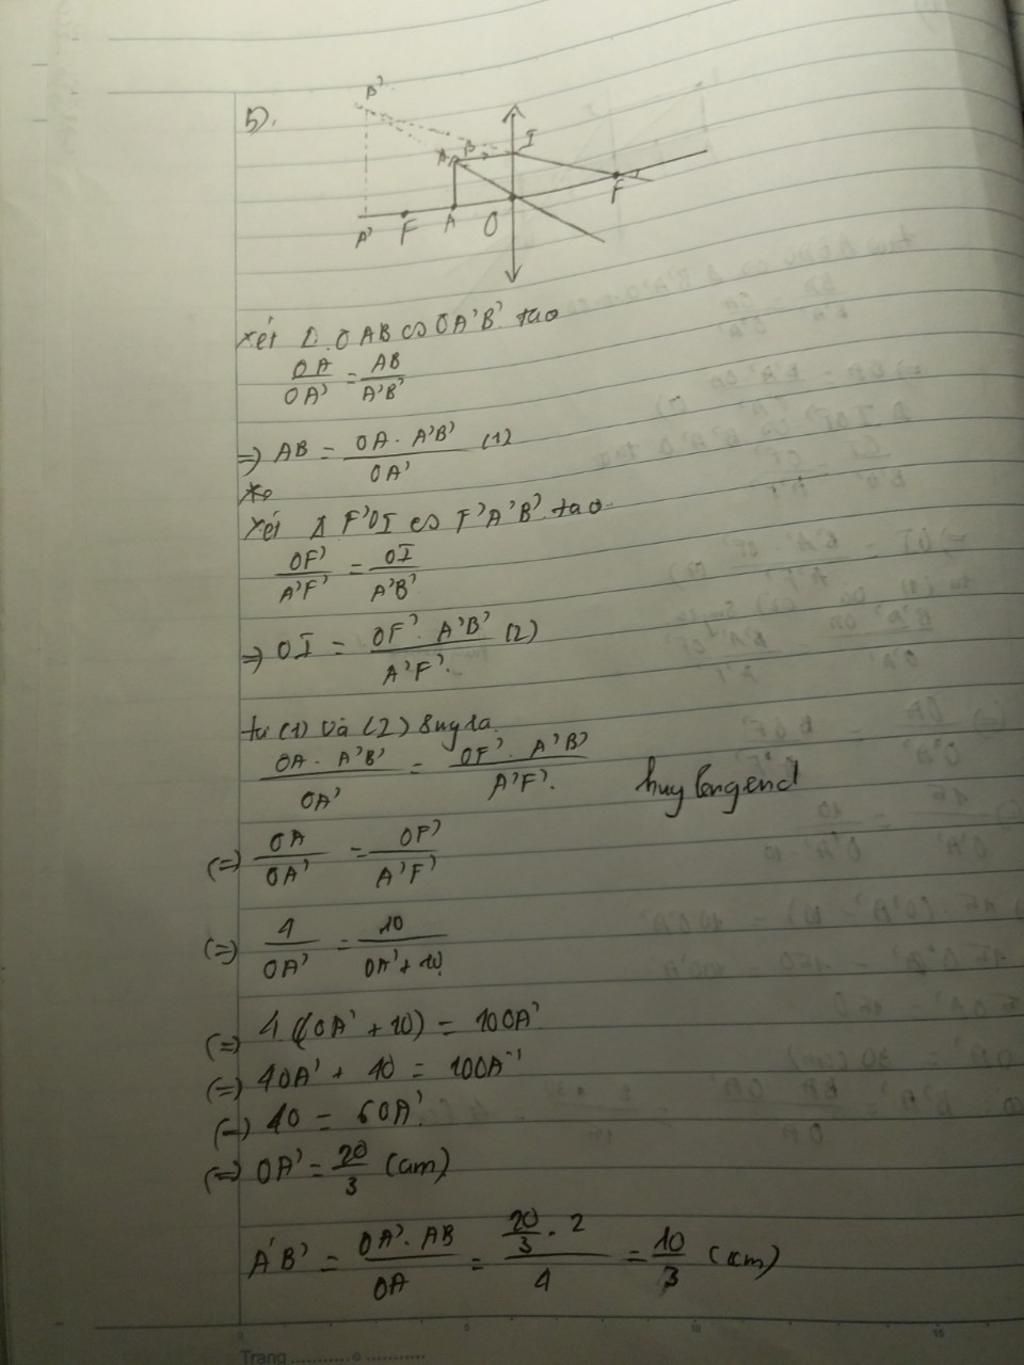 5).
B'
A B I
A' F A O F'
Xét Δ OAB ∽ OA'B' ta có
OA/OA' = AB/A'B'
=> AB = OA . A'B'/OA' (1)
Xét Δ F'OI ∽ F'A'B' ta có
OF'/A'F' = OI/A'B'
=> OI = OF' . A'B'/A'F' (2)
từ (1) và (2) suy ra
OA . A'B'/OA' = OF' . A'B'/A'F'
huylengend
(=) OA/OA' = OF'/A'F'
(=) 4/OA' = 10/OA' + 10
(=) 4 (OA' + 10) = 10OA'
(=) 4OA' + 40 = 10OA'
(=) 40 = 6OA'
(=) OA' = 20/3 (cm)
A'B' = OA' . AB/OA = 20/3 . 2/4 = 10/3 (cm)
Trang